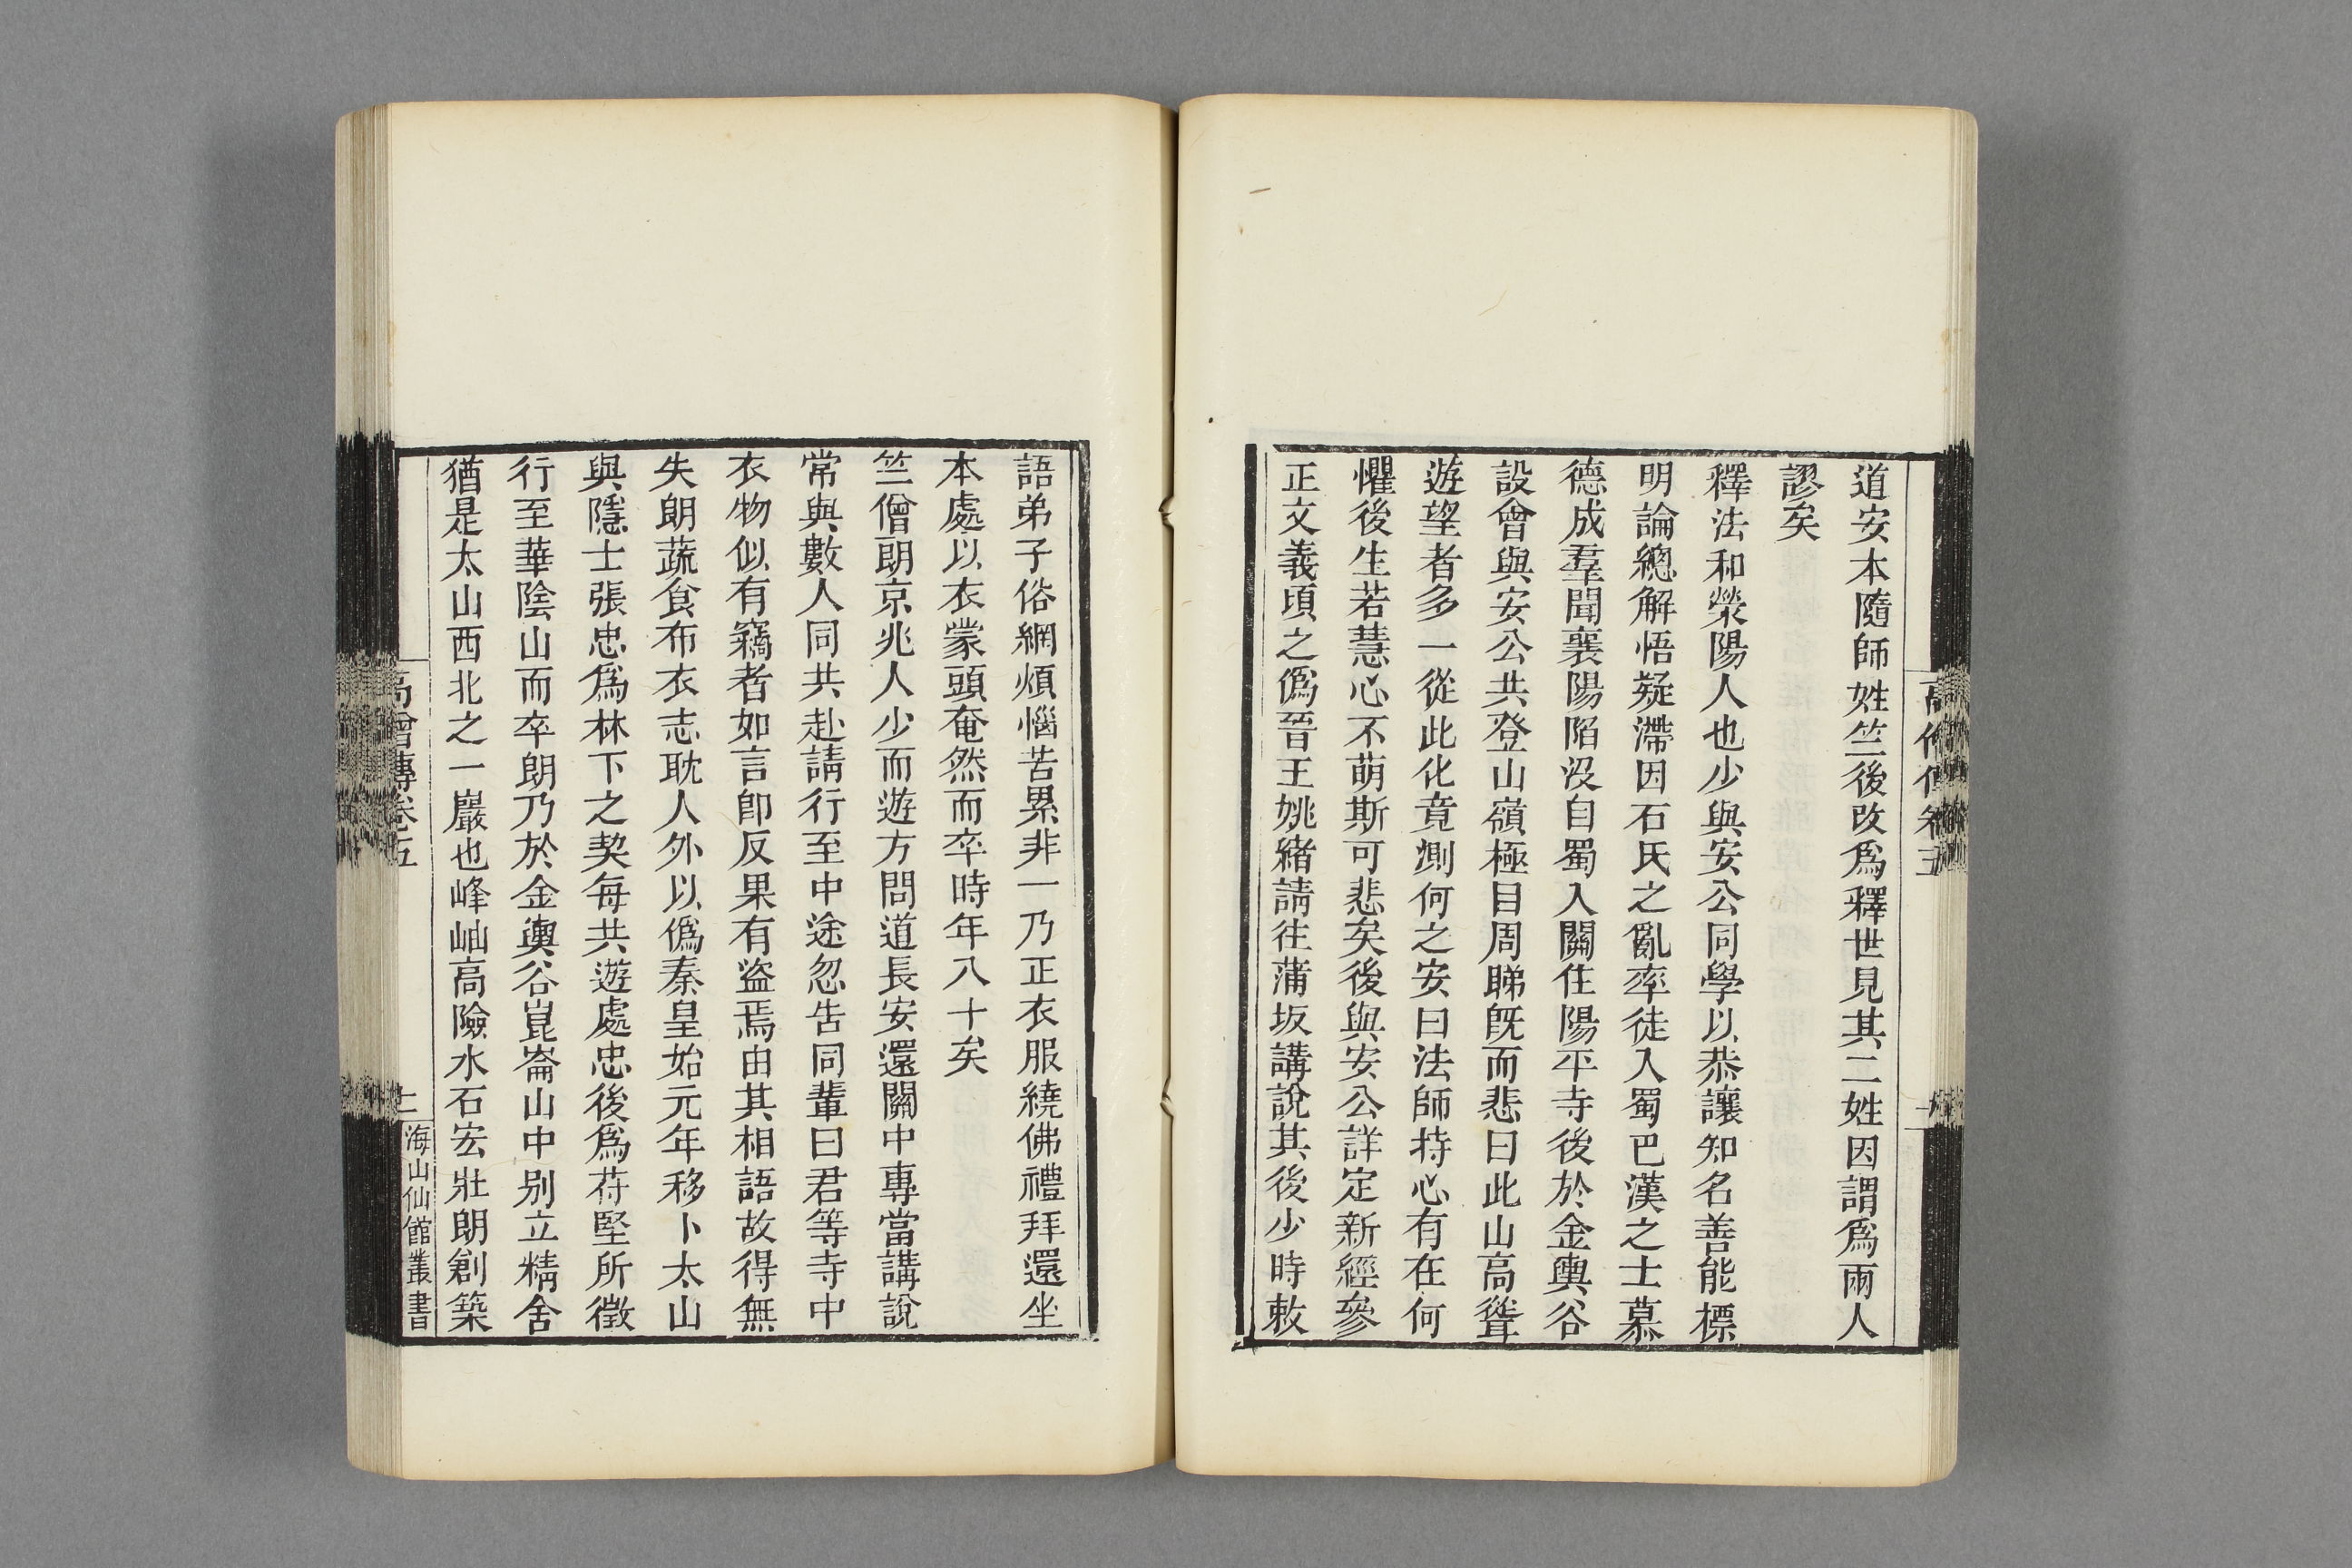 道安本隨師姓竺後改爲釋世見其二姓因謂爲兩人
謬矣
釋法和滎陽人也少與安公同學以恭讓知名善能標
明論總解悟疑滯因石氏之亂率徒入蜀巴漢之士慕
德成羣聞襄陽陷沒自蜀入關住陽平寺後於金輿谷
設會與安公共登山嶺極目周睇旣而悲曰此山高聳
遊望者多一從此化竟測何之安曰法師持心有在何
懼後生若慧心不萌斯可悲矣後與安公詳定新經參
正文義頃之僞晉王姚緒請往蒲坂講說其後少時敕
語弟子俗網煩惱苦累非一乃正衣服繞佛禮拜還坐
本處以衣蒙頭奄然而卒時年八十矣
竺僧朗京兆人少而遊方問道長安還關中專當講說
常與數人同共赴請行至中途忽告同輩曰君等寺中
衣物似有竊者如言卽反果有盜焉由其相語故得無
失朗蔬食布衣志耽人外以僞秦皇始元年移卜太山
與隱士張忠爲林下之契每共遊處忠後爲苻堅所徵
行至華陰山而卒朗乃於金輿谷崑崙山中別立精舍
猶是太山西北之一巖也峰岫高險水石宏壯朗創築
高僧傳卷五
海山仙館叢書